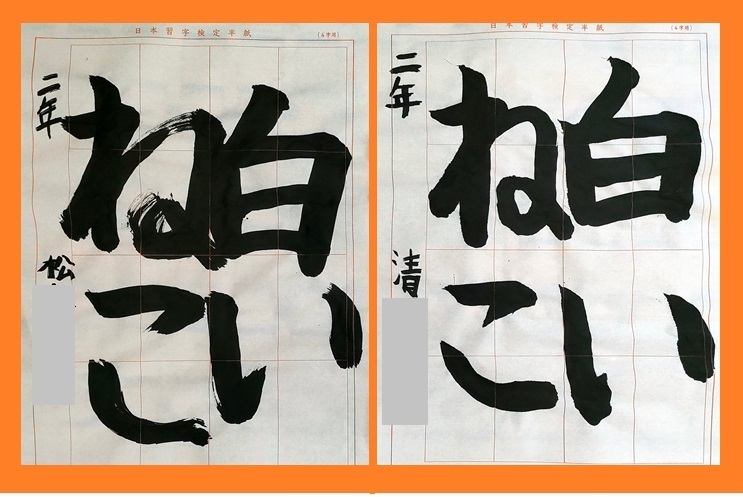 日本習字検定半紙
(4字用)
白い
ねこ
二年
松
日本習字検定半紙
(4字用)
白い
ねこ
二年
清